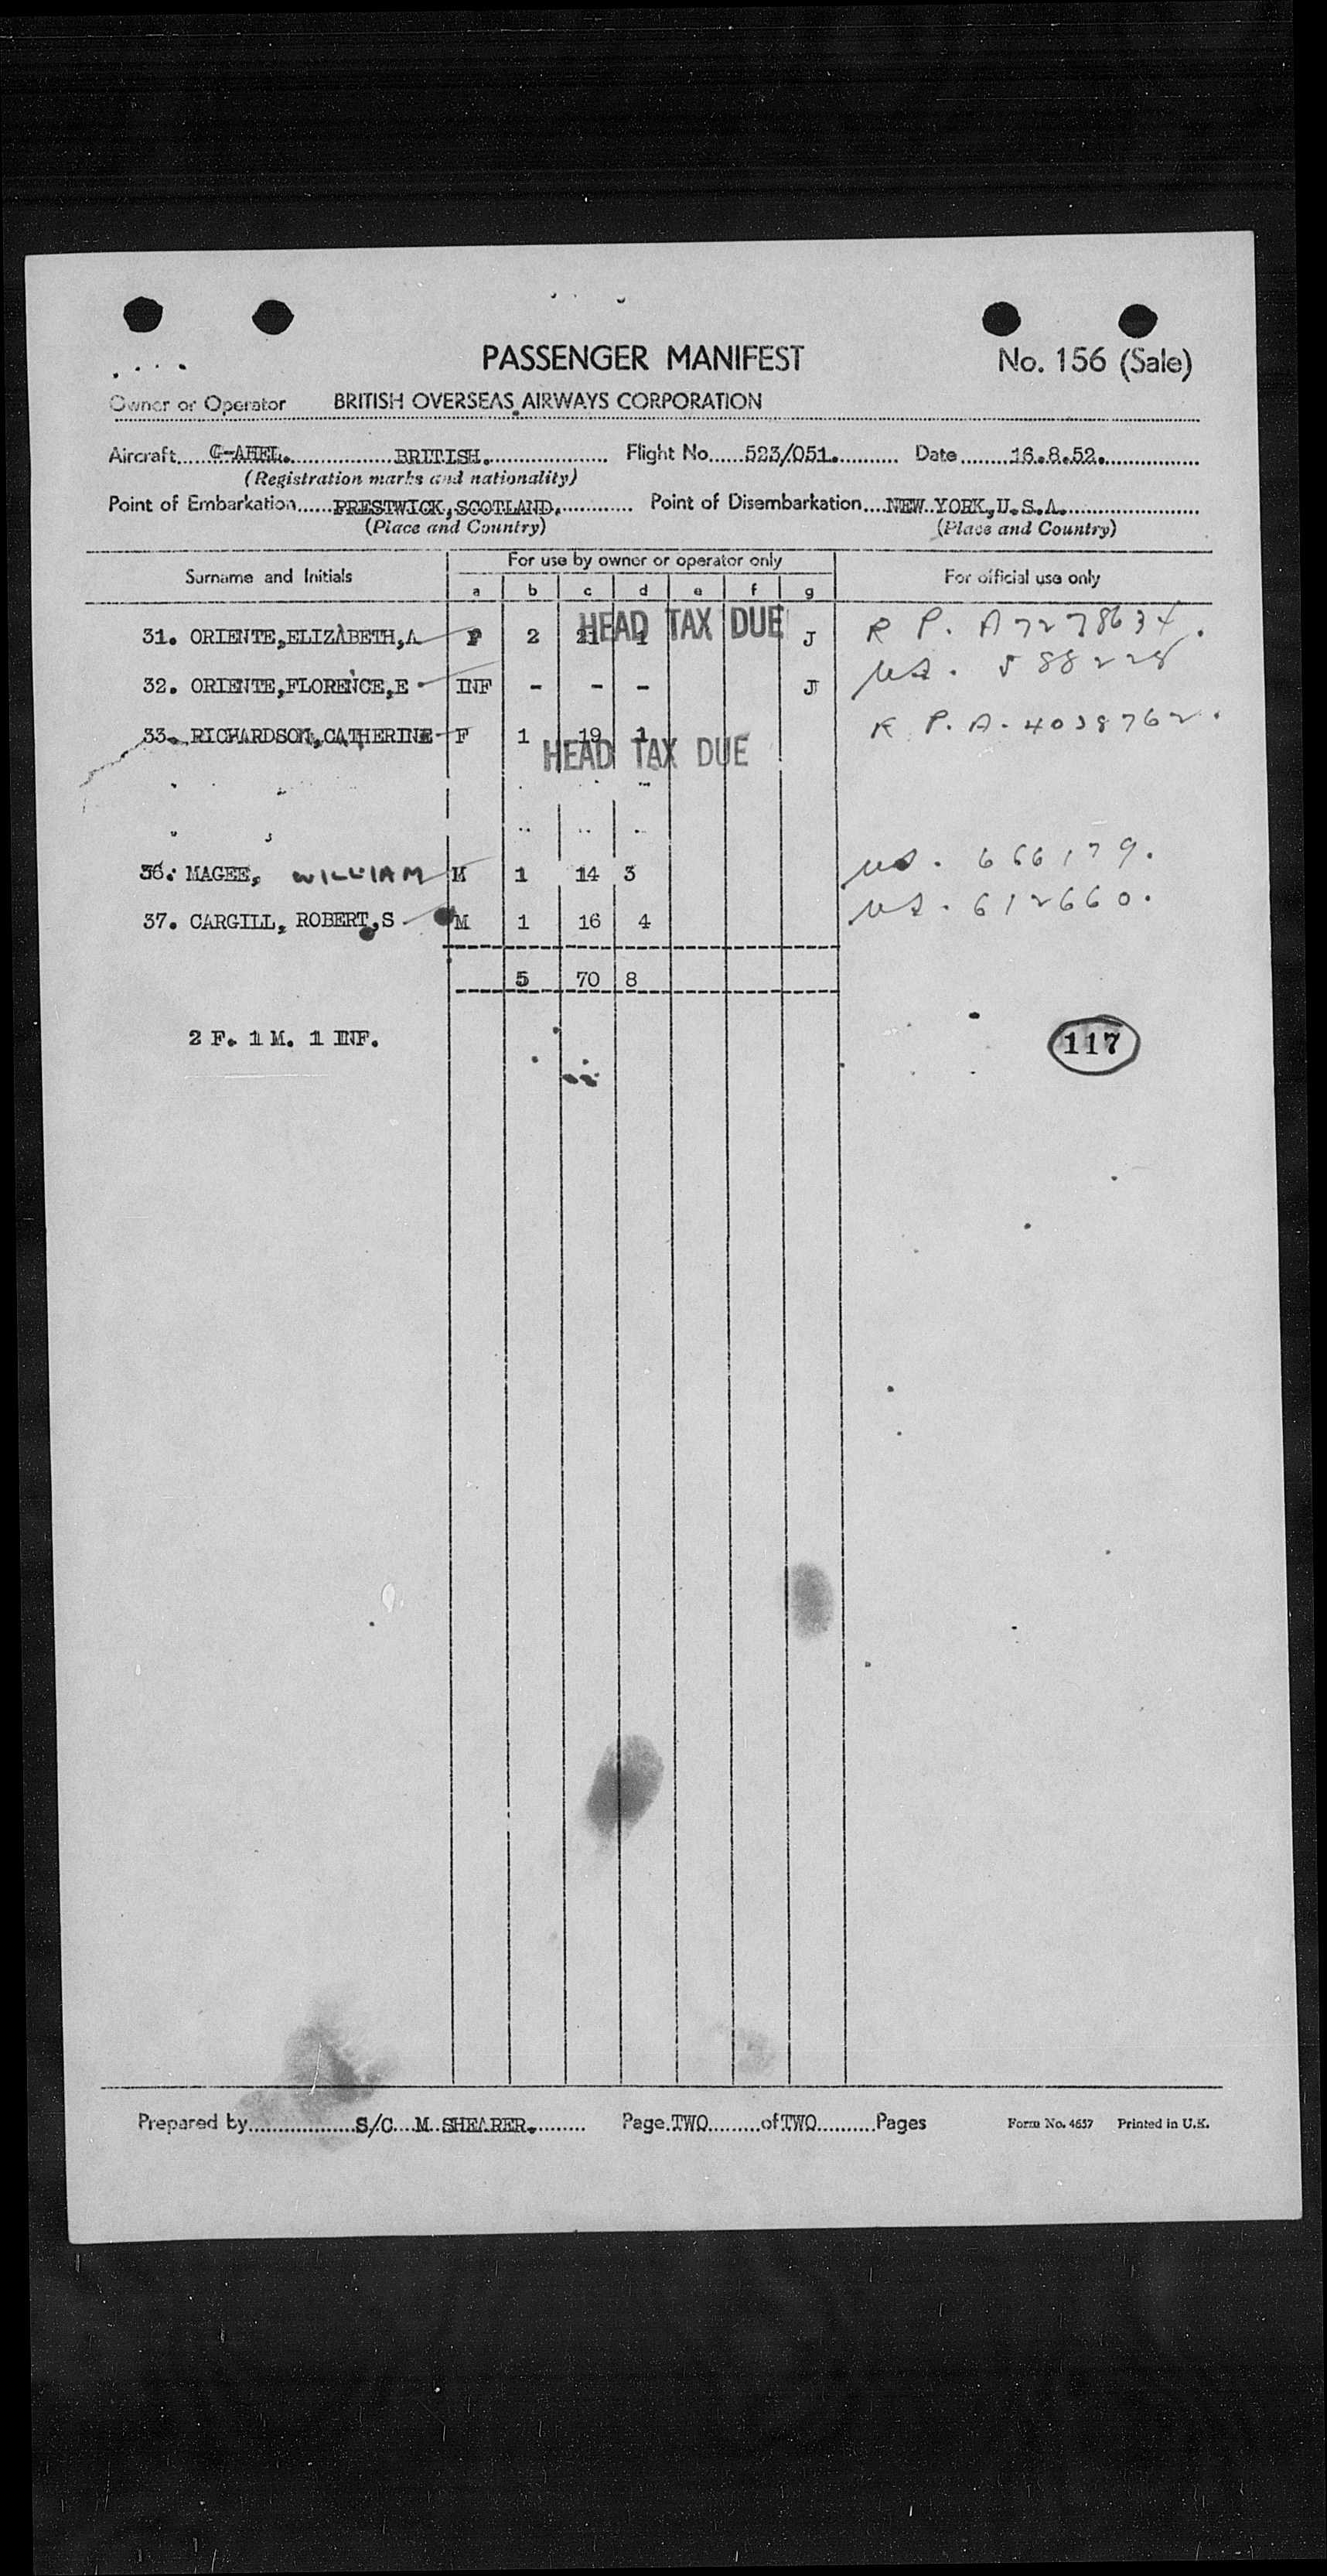 PASSENGER MANIFEST No. 156 (Sale)
Owner or Operator BRITISH OVERSEAS AIRWAYS CORPORATION
Aircraft G-AHEL. BRITISH. Flight No. 523/051. Date 16.8.52.
(Registration marks and nationality)
Point of Embarkation PRESTWICK, SCOTLAND. Point of Disembarkation NEW YORK, U.S.A.
(Place and Country) (Place and Country)
For use by owner or operator only
Surname and Initials For official use only
a b c d e f g
HEAD TAX DUE
31. ORIENTE, ELIZABETH, A F 2 21 1 J R P. A7278634.
32. ORIENTE, FLORENCE, E INF - - - J US. 588228
33. RICHARDSON, CATHERINE F 1 19 1 R P. A. 4038762.
HEAD TAX DUE
36. MAGEE, WILLIAM M 1 14 3 US. 666179.
37. CARGILL, ROBERT, S M 1 16 4 US. 612660.
5 70 8
2 F. 1 M. 1 INF. 117
Prepared by S/C M SHEARER. Page TWO of TWO Pages Form No. 4637 Printed in U.K.